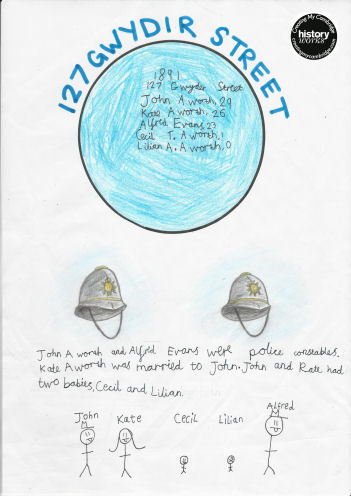 127 GWYDIR STREET
Creating My Cambridge
history
WORKS
creatingmycambridge.com
1891
127 Gwyder Street
John A worsh, 29
Kate A worsh, 26
Alfred Evans 23
Cecil T. A worsh, 1
Lilian A. A worsh, 0
John A worsh and Alfred Evans were police constables.
Kate A worsh was married to John. John and Kate had
two babies, Cecil and Lilian.
John
Kate
Cecil
Lilian
Alfred